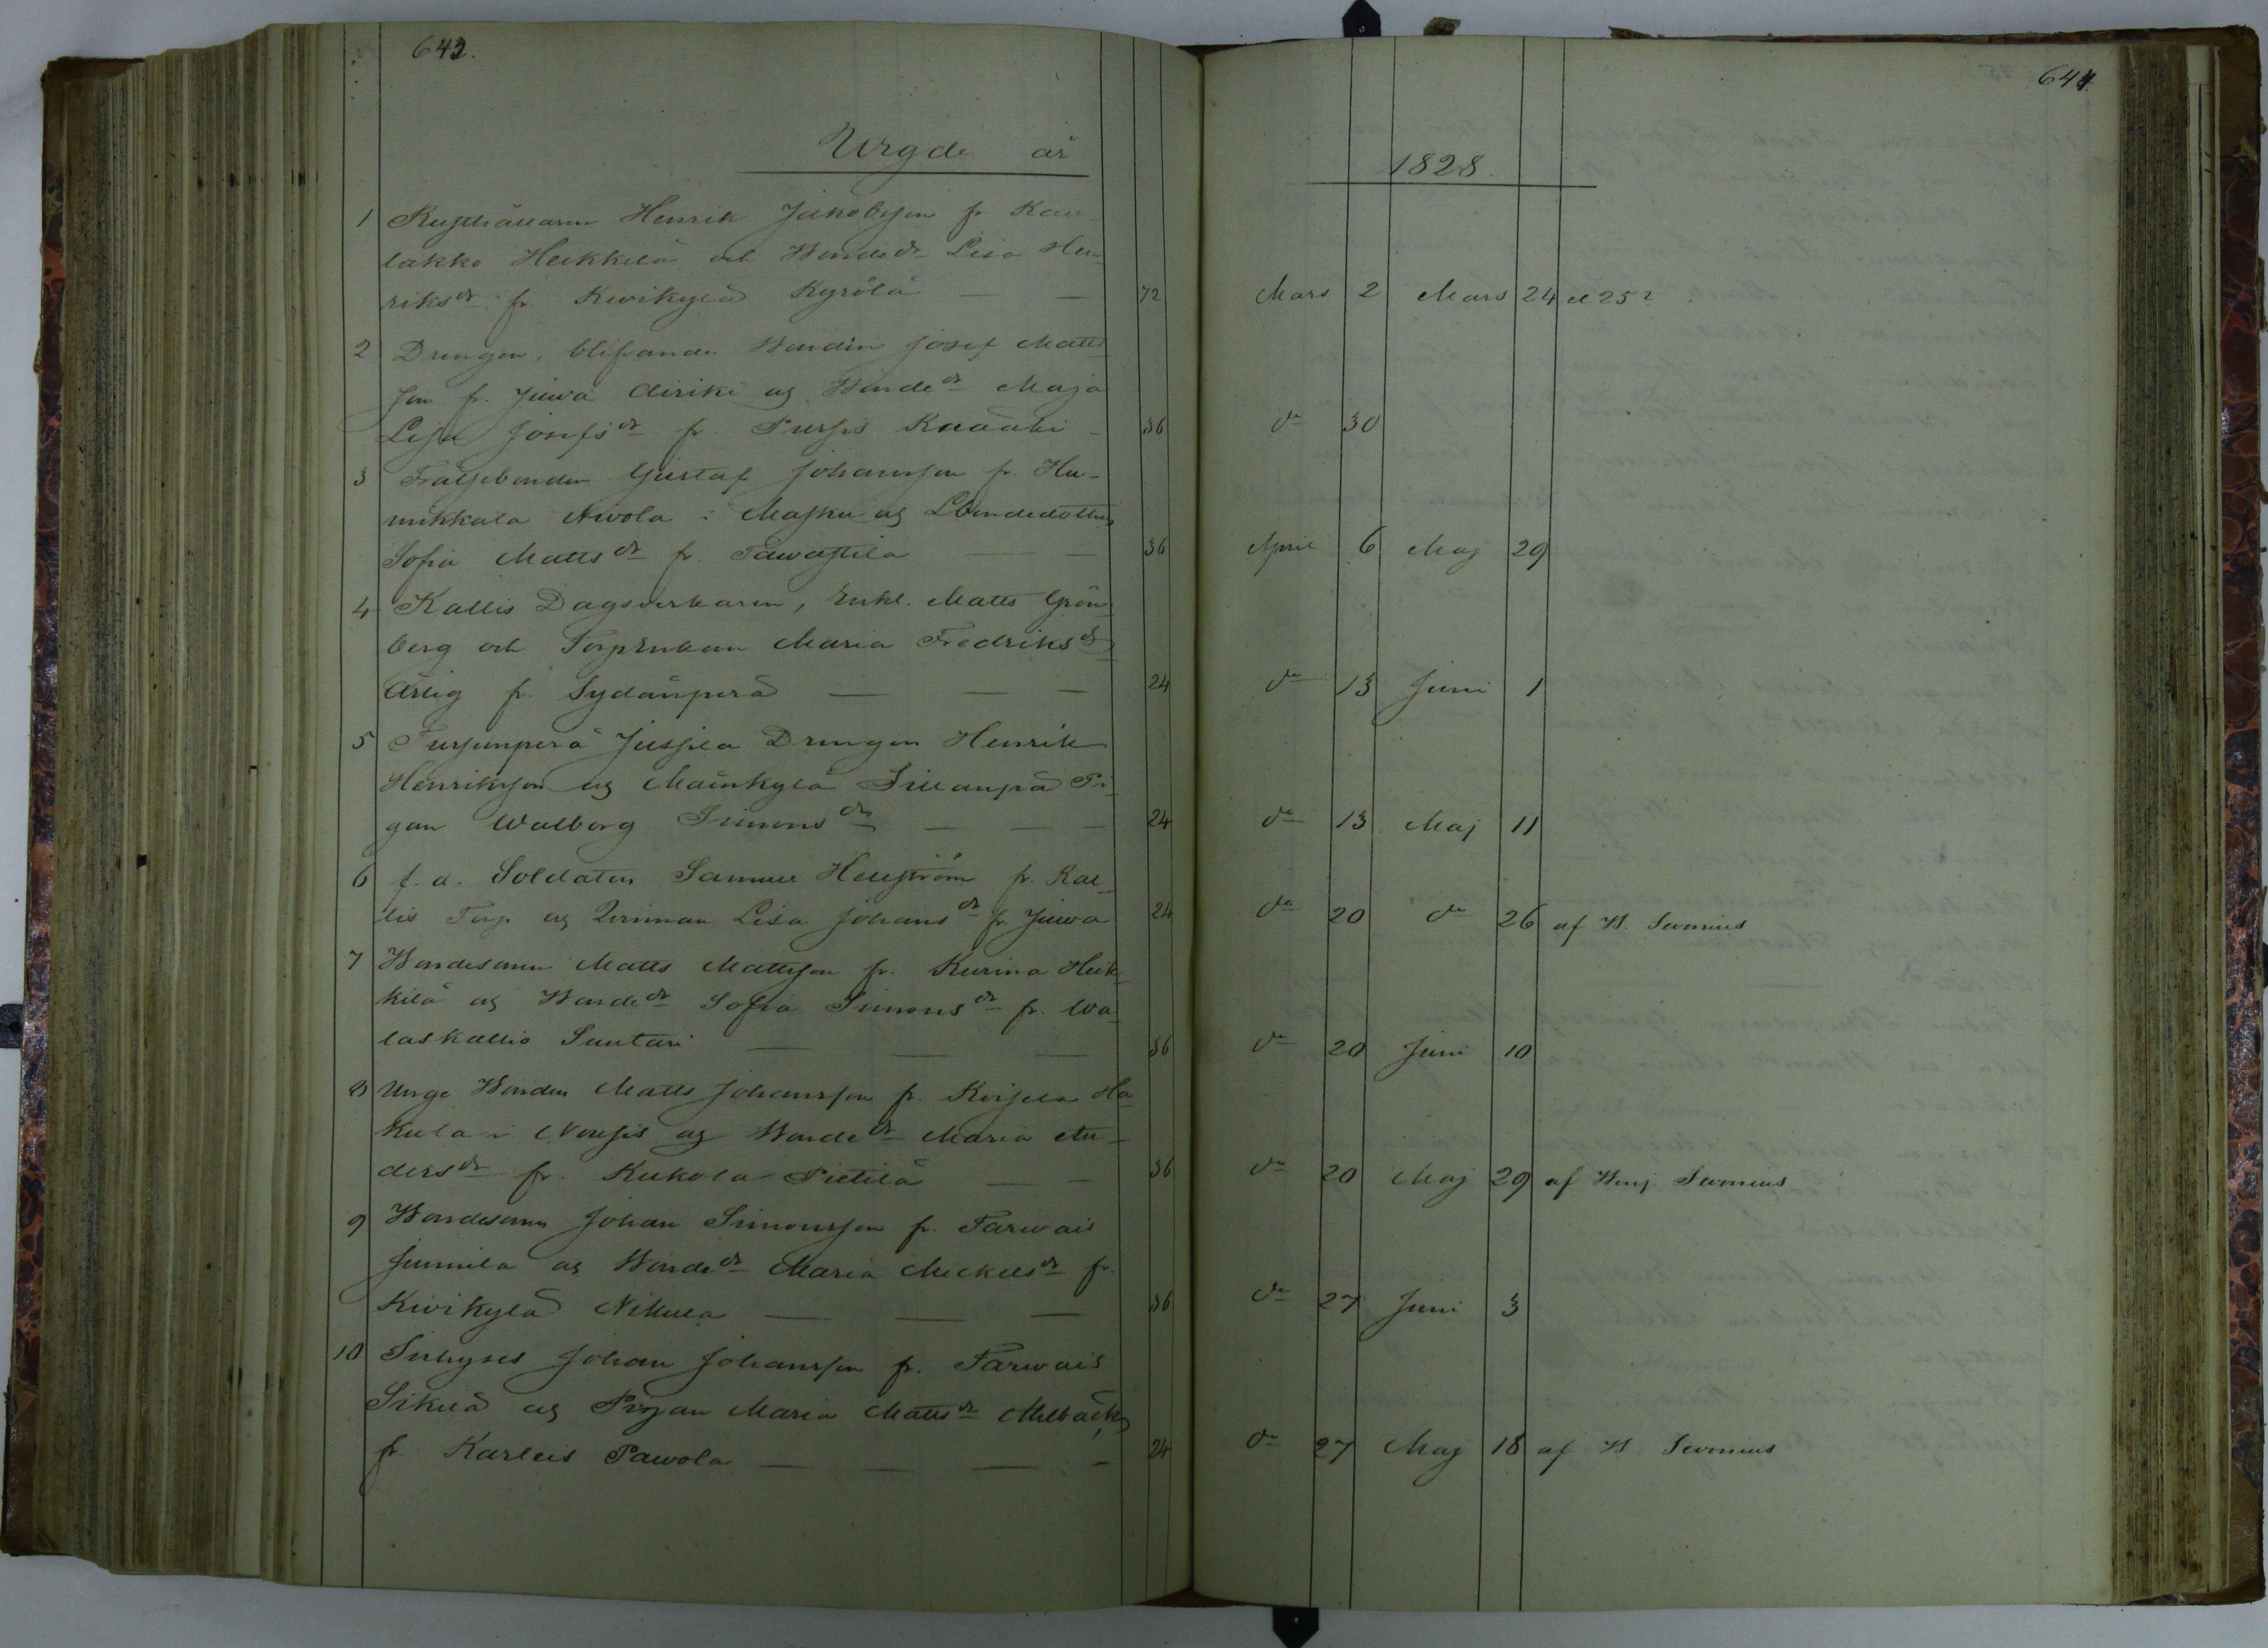 643.
644.
Wigde år
1828.
1 Rusthållaren Henrik Jakobsson fr. Kau
lakko Heikkilä och Bonde dr Lisa Hen
riks dr fr. Kivikylä Kyrölä — — 72 Mars 2 Mars 24 el 25?
2 Drengen, blifvande Bonden Josef Matts
son fr. Juva Äiriki og Bonde dr Maja
Lisa Josefs dr fr. Pursis — 36 do 30
3 Frälsebonden Gustaf Johansson fr. Hu-
mikkala Nivola i Masku og Lbondedottren
Sofia Matts dr fr. Tawastila — — 36 April 6 Maj 29
4 Kallis Dagsverkaren, Enkl. Matts Grön
berg och Torpenkan Maria Fredriks dr
Ärlig fr. Sydänperä — — — 24 do 13 Juni 1
5 Tursunperä Jussila Drengen Henrik
Henriksson og Mäenkylä Sillanpä Pi
gan Walborg Simons dr — — — 24 do 13 Maj 11
6 f. d. Soldaten Samuel Hellström fr. Kal
lis Torp og Qvinnan Lisa Johans dr fr. Juva 24 do 20 do 26 af B. Sevonius
7 Bondesonen Matts Mattsson fr. Kurina Heik
kilä og Bonde dr Sofia Simons dr fr. Wa
laskallio Suutari — — — 36 do 20 Juni 10
8 Unge Bonden Matts Johansson fr. Koisela Ha
kula i Nousis og Bonde dr Maria An-
ders dr fr. Kukola Pietilä — — 36 do 20 Maj 29 af Benj. Sevonius
9 Bondesonen Johan Simonsson fr. Tarwais
Junnila og Bonde dr Maria Mickels dr fr.
Kivikylä Nikula — — — 36 do 27 Juni 3
10 Inhyses Johan Johansson fr. Tarwais
Sikilä og Pigan Maria Matts dr Ahlbäck,
fr. Karleis Pawola — — — — 24 do 27 Maj 18 af B Sevonius